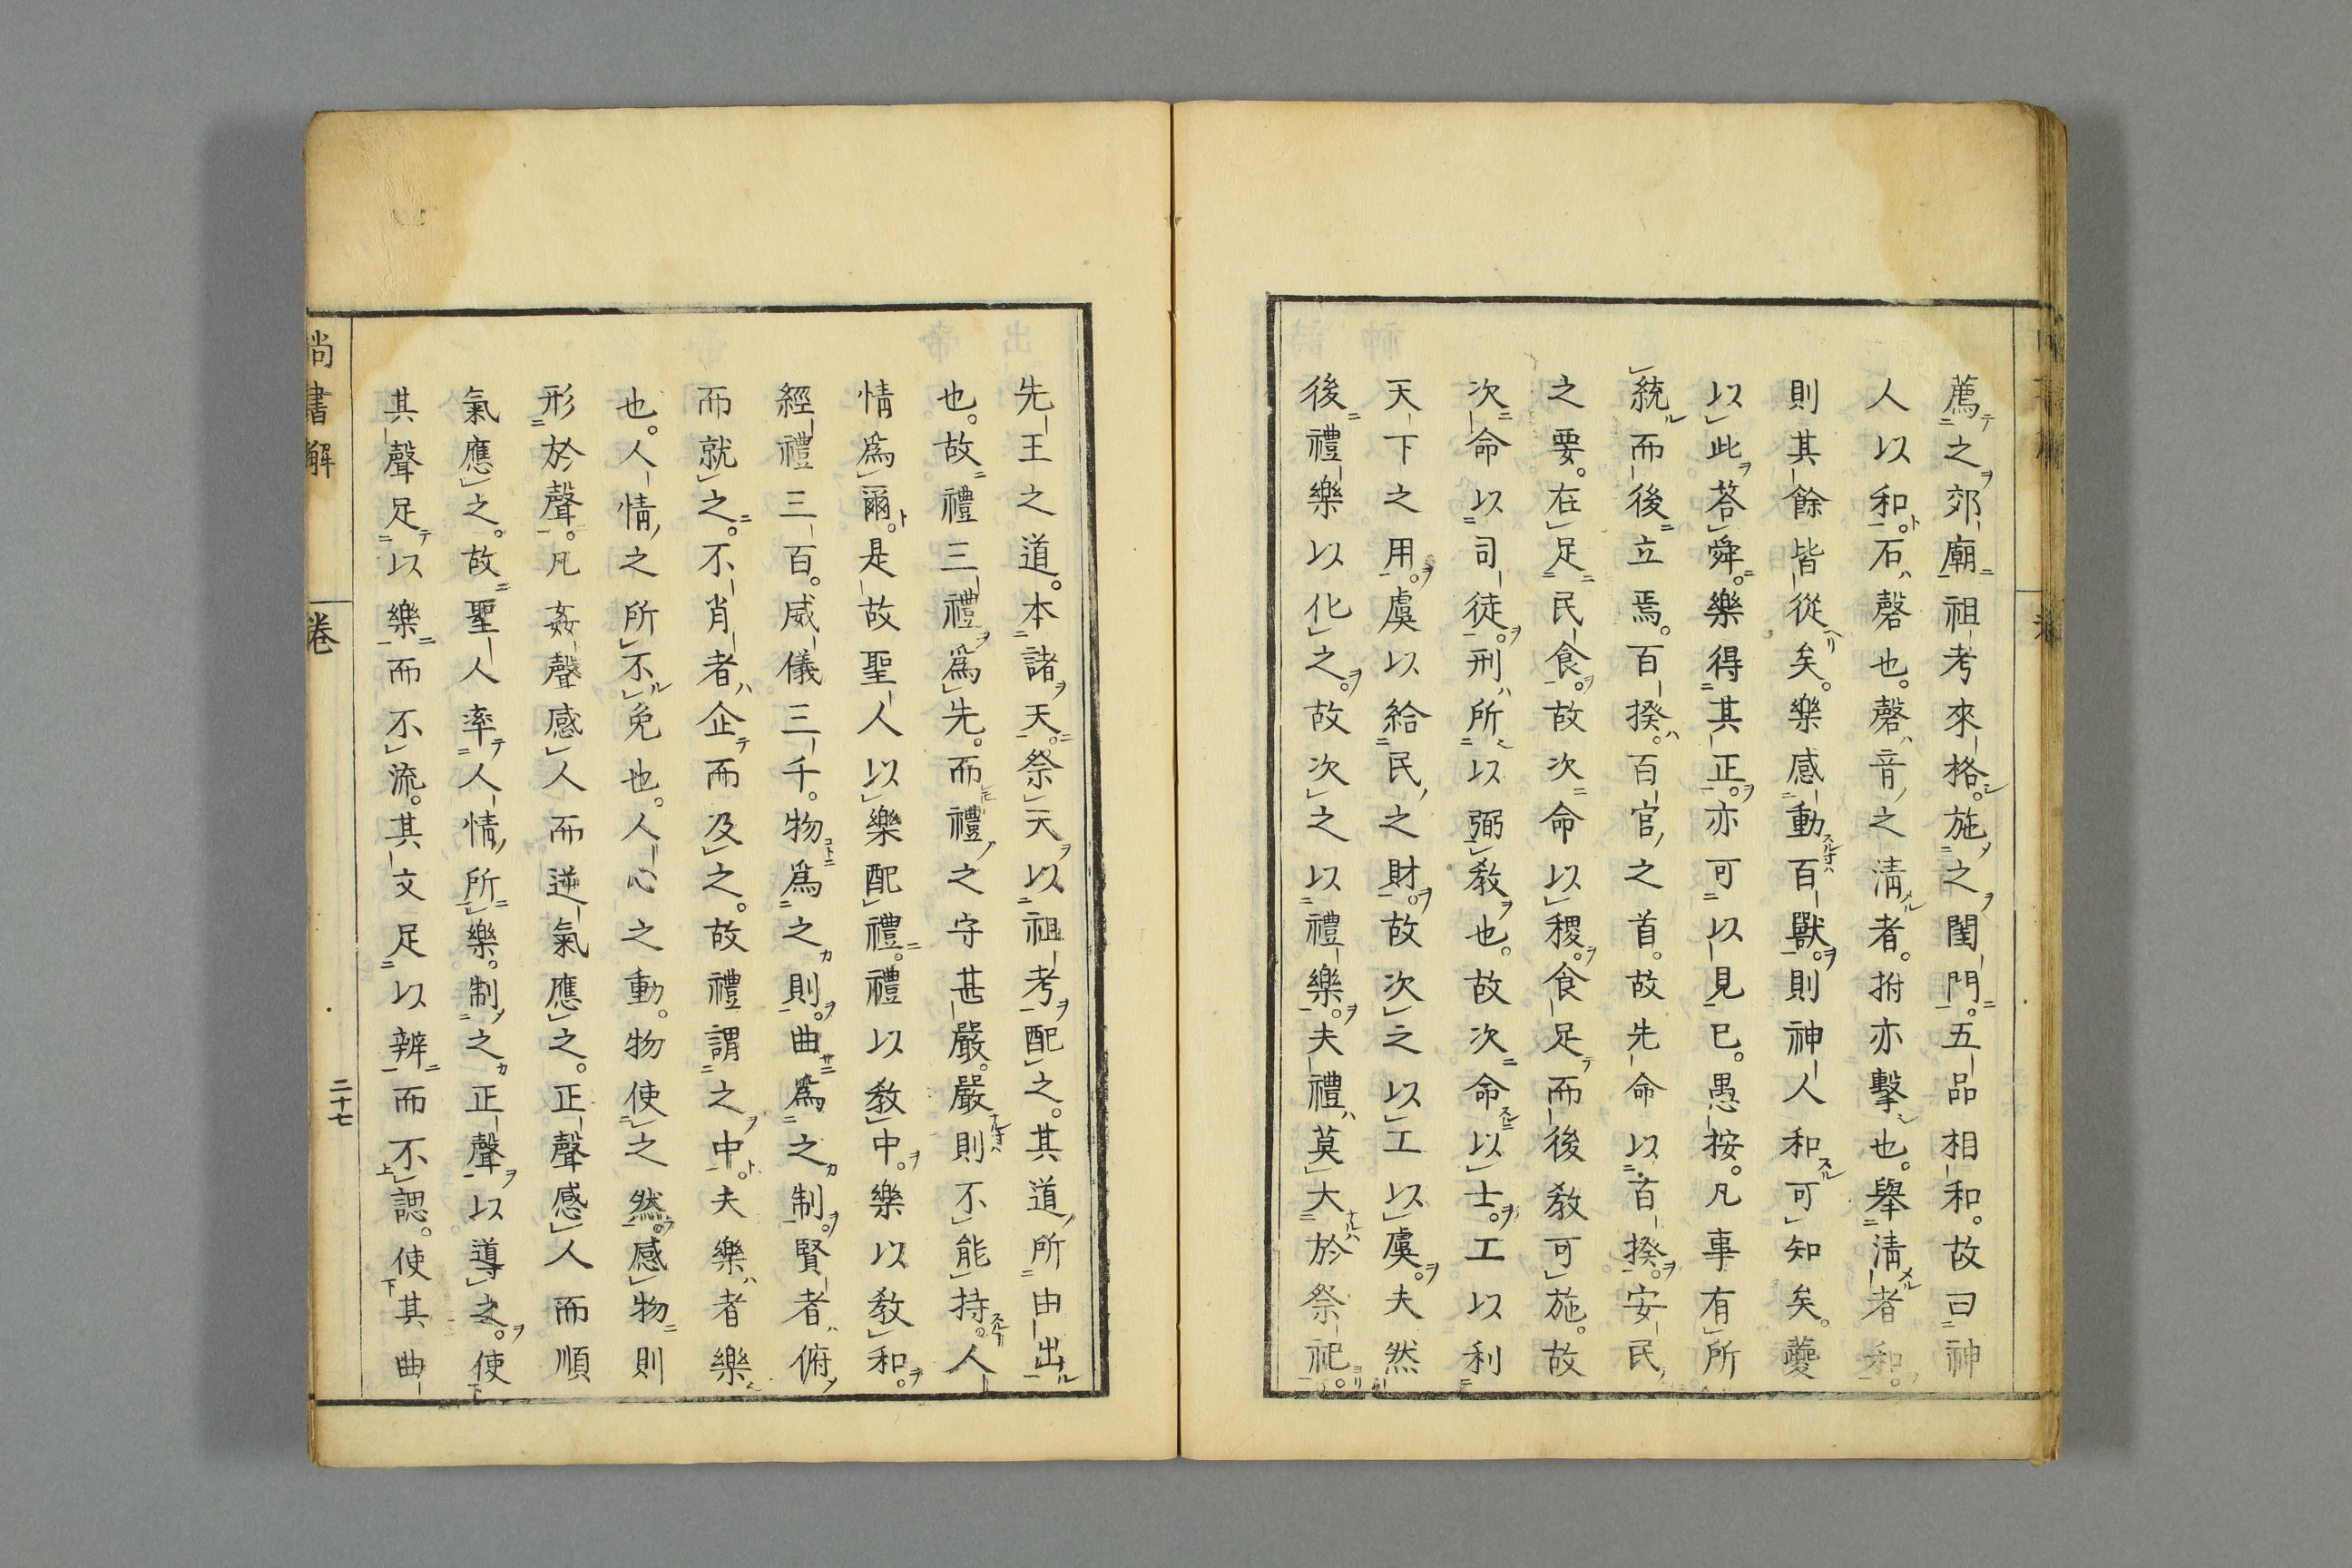 薦之郊廟祖考來格。施之閨門。五品相和。故曰神
人以和。石磬也。磬音之淸者。拊亦擊也。舉淸者和。
則其餘皆從矣。樂感動百獸。則神人和可知矣。夔
以此荅舜。樂得其正。亦可以見已。愚按。凡事有所
統而後立焉。百揆。百官之首。故先命以百揆。安民
之要。在足民食。故次命以稷。食足而後敎可施。故
次命以司徒。刑所以弼敎也。故次命以士。工以利
天下之用。虞以給民之財。故次之以工以虞。夫然
後禮樂以化之。故次之以禮樂。夫禮莫大於祭祀。
先王之道。本諸天。祭天以祖考配之。其道所由出
也。故禮三禮爲先。而禮之守甚嚴。嚴則不能持。人
情爲爾。是故聖人以樂配禮。禮以敎中。樂以敎和。
經禮三百。威儀三千。物爲之則。曲爲之制。賢者俯
而就之。不肖者企而及之。故禮謂之中。夫樂者樂
也。人情之所不免也。人心之動。物使之然。感物則
形於聲。凡姦聲感人而逆氣應之。正聲感人而順
氣應之。故聖人率人情所樂。制之正聲以導之。使
其聲足以樂而不流。其文足以辨而不諰。使其曲
尚書解 卷 二十七